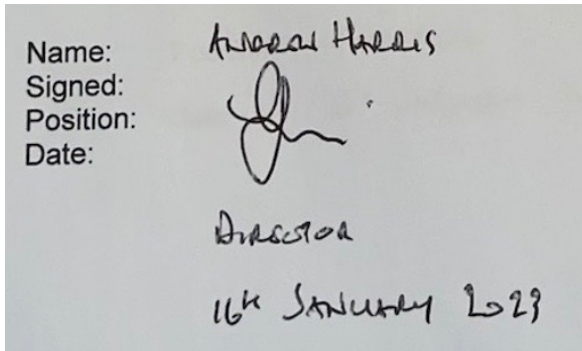 Name: ANDREW HARRIS
Signed:
Position:
Date:
DIRECTOR
16th JANUARY 2023